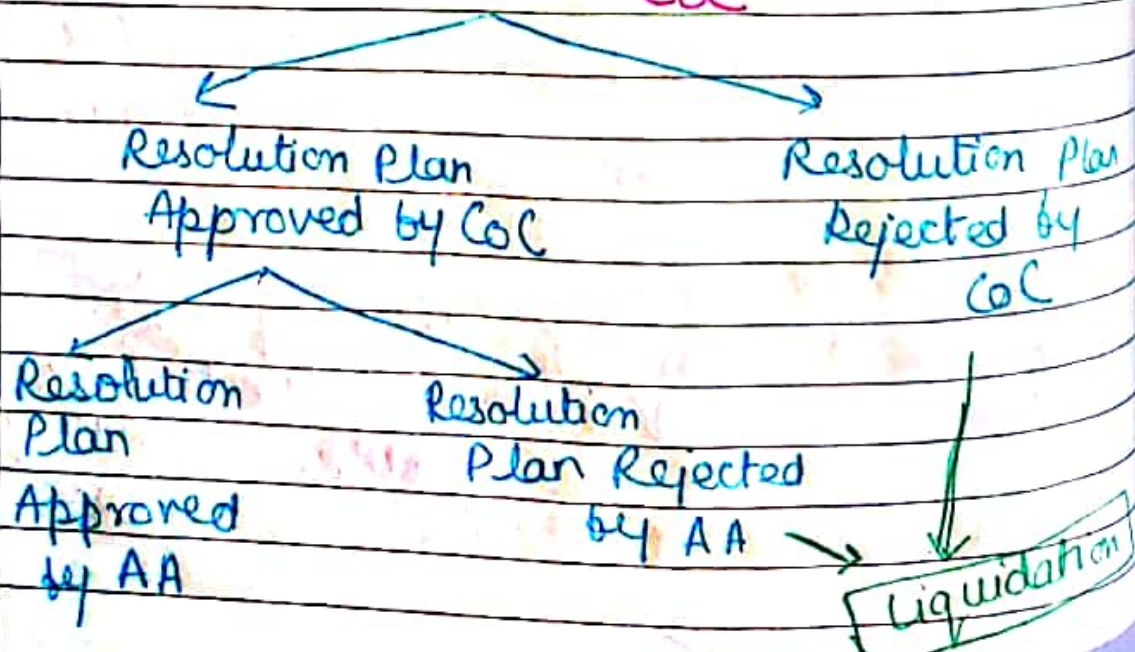 CoC
Resolution Plan
Approved by CoC
Resolution Plan
Rejected by
CoC
Resolution
Plan
Approved
by AA
Resolution
Plan Rejected
by AA
Liquidation